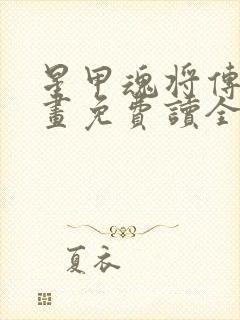 星甲魂将傳
畫免費讀全
夏衣